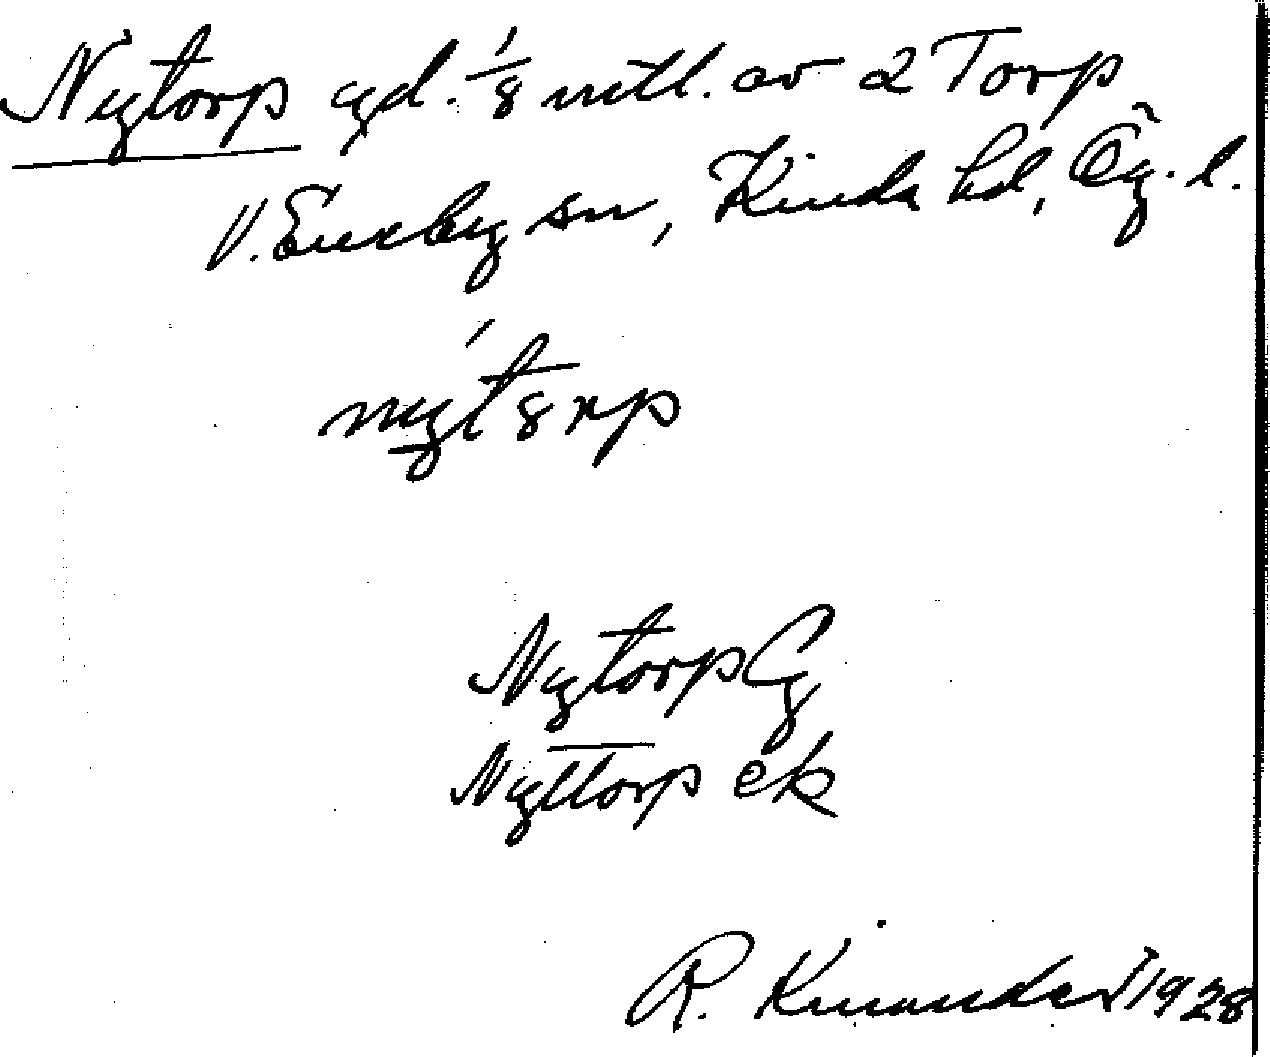 Nytorp gd. 1/8 mtl. av 2 Torp
V. Eneby sn, Kinda hd, Ög. l.
nyt8rp
Nytorp Cg
Nyttorp ek
R. Kinander 1928